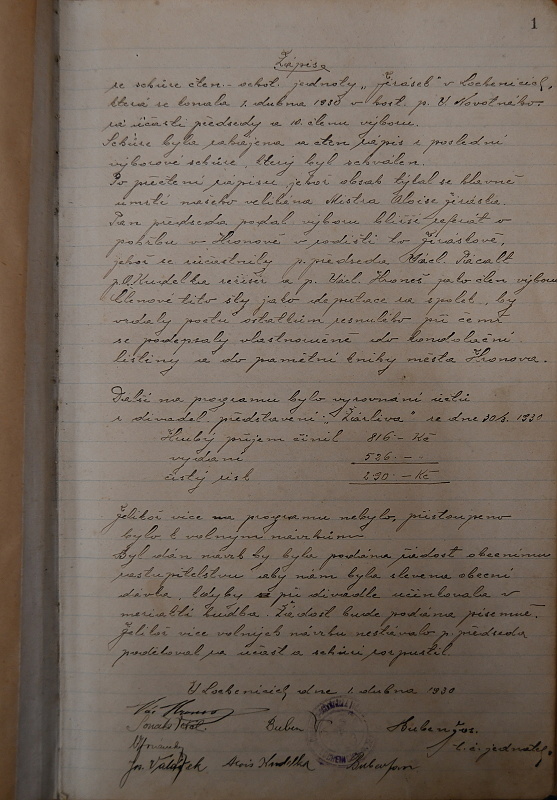 1
Zápis
ze schůze čten.- ochot. jednoty „Jirásek" v Lochenicích,
která se konala 1. dubna 1930 v host. p. V. Novotného
za účasti předsedy a 10. členu výboru.
Schůze byla zahájena a čten zápis z poslední
výborové schůze, který byl schválen.
Po přečtení zápisu, jehož obsah týkal se hlavně
úmrtí našeho velikána Mistra Aloise Jiráska.
Pan předseda podal výboru bližší referát o
pohřbu v Hronově v rodišti to Jiráskově,
jehož se zúčastnili p. předseda Václ. Pácalt
p. O. Kudelka režisér a p. Václ. Hroneš jako člen výboru
Členové tito šly jako deputace za spolek, by
vzdaly poctu ostatkům zesnulého při čemž
se podepsaly vlastnoručně do kondolační
listiny a do pamětní knihy města Hronova.
Další na programu bylo vyrovnání účtů
z divadel. představení „Žárliva" ze dne 30/3. 1930
Hrubý příjem činil 816·- Kč
vydání 526·- -
čistý zisk 290·- Kč
Jelikož více na programu nebylo, přistoupeno
bylo k volným návrhům
Byl dán návrh by byla podána žádost obecnímu
zastupitelstvu aby nám byla slevena obecní
dávka, kdyby při divadle účinkovala v
meziaktí hudba. Žádost bude podána písemně.
Jelikož více volných návrhu nestávalo p. předseda
poděkoval za účast a schůzi rozpustil.
V Lochenicích, dne 1. dubna 1930
Buben
Alois Kudelka
t. č. jednatel.